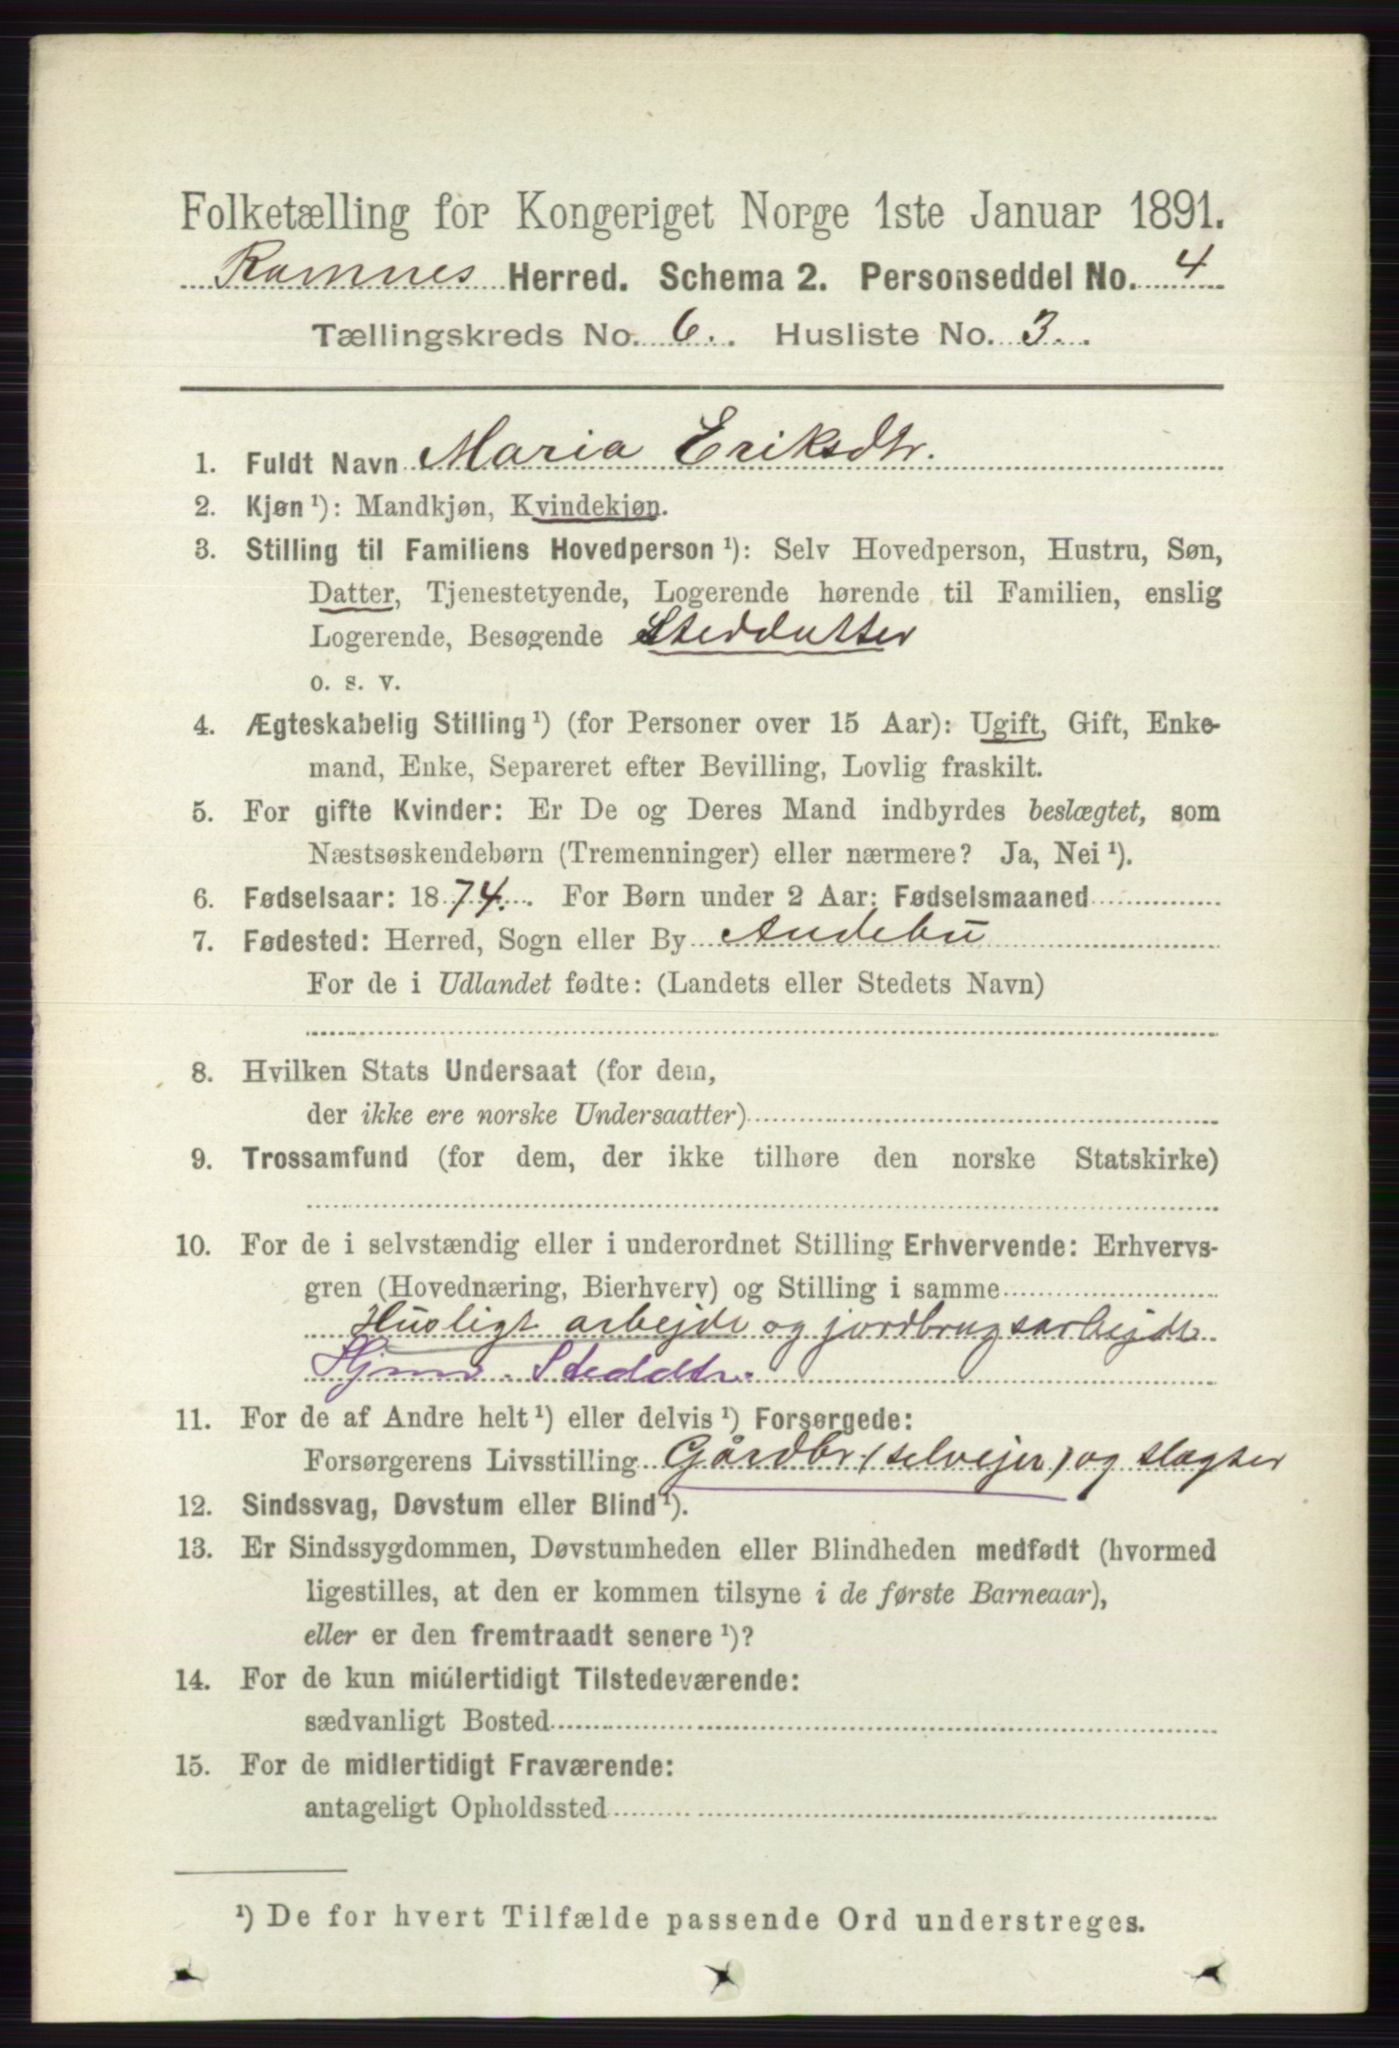 Folketælling for Kongeriget Norge 1ste Januar 1891.
Ramnes Herred. Schema 2. Personseddel No. 4
Tællingskreds No. 6. Husliste No. 3.
1. Fuldt Navn Maria Eriksdtr.
2. Kjøn ¹): Mandkjøn, Kvindekjøn.
3. Stilling til Familiens Hovedperson ¹): Selv Hovedperson, Hustru, Søn,
Datter, Tjenestetyende, Logerende hørende til Familien, enslig
Logerende, Besøgende Steddatter
o. s. v.
4. Ægteskabelig Stilling ¹) (for Personer over 15 Aar): Ugift, Gift, Enke-
mand, Enke, Separeret efter Bevilling, Lovlig fraskilt.
5. For gifte Kvinder: Er De og Deres Mand indbyrdes beslægtet, som
Næstsøskendebørn (Tremenninger) eller nærmere? Ja, Nei ¹).
6. Fødselsaar: 1874. For Børn under 2 Aar: Fødselsmaaned
7. Fødested: Herred, Sogn eller By Andebu
For de i Udlandet fødte: (Landets eller Stedets Navn)
8. Hvilken Stats Undersaat (for dem,
der ikke ere norske Undersaatter)
9. Trossamfund (for dem, der ikke tilhøre den norske Statskirke)
10. For de i selvstændig eller i underordnet Stilling Erhvervende: Erhvervs-
gren (Hovednæring, Bierhverv) og Stilling i samme
Husligt arbejde og jordbrugsarbejde
Hjmv. Steddtr.
11. For de af Andre helt ¹) eller delvis ¹) Forsørgede:
Forsørgerens Livsstilling Gårdbr. (selvejer) og slagter
12. Sindssvag, Døvstum eller Blind ¹).
13. Er Sindssygdommen, Døvstumheden eller Blindheden medfødt (hvormed
ligestilles, at den er kommen tilsyne i de første Barneaar),
eller er den fremtraadt senere ¹)?
14. For de kun midlertidigt Tilstedeværende:
sædvanligt Bosted
15. For de midlertidigt Fraværende:
antageligt Opholdssted
¹) De for hvert Tilfælde passende Ord understreges.